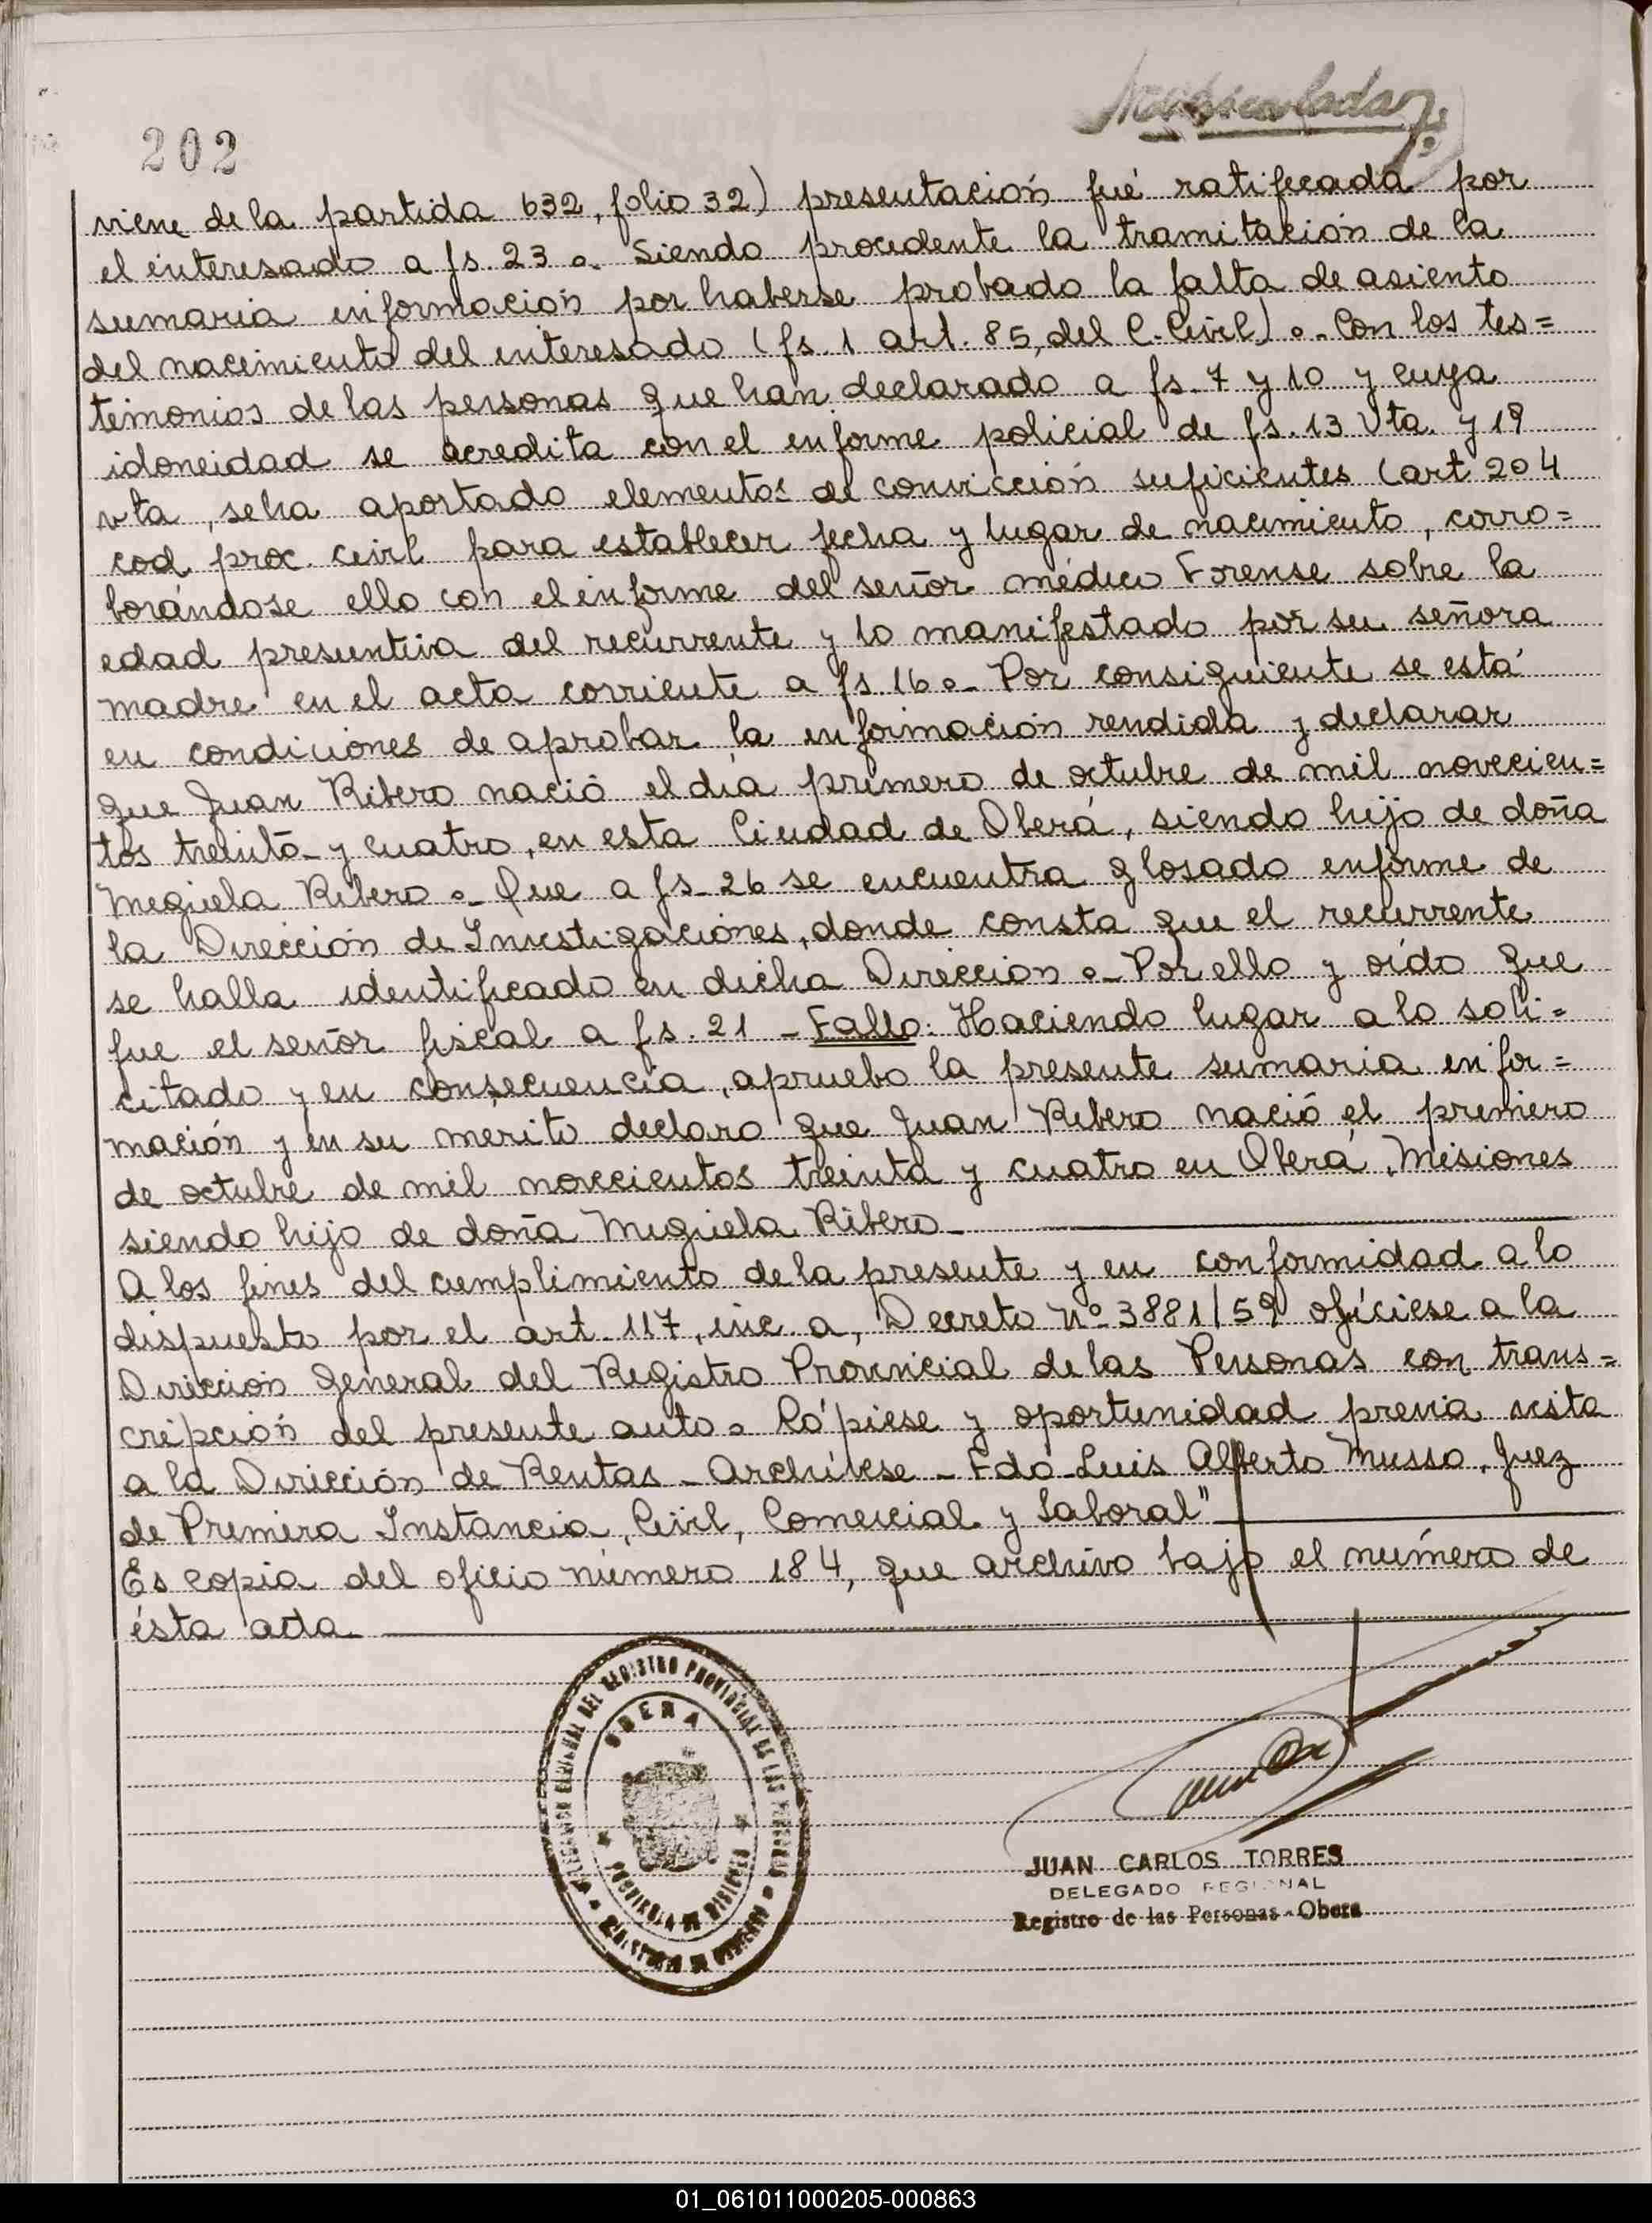 202
viene de la partida 632, folio 32) presentación fué ratificada por
el interesado a fs. 23 o. Siendo procedente la tramitación de la
sumaria información por haberse probado la falta de asiento
del nacimiento del interesado (fs. 1 art. 85, del C. Civil) o.- Con los tes=
timonios de las personas que han declarado a fs. 7 y 10 y cuya
idoneidad se acredita con el informe policial de fs. 13 Vta. y 19
vta, se ha aportado elementos de convicción suficientes (art 204
cod. proc. civil para establecer fecha y lugar de nacimiento, corro=
borándose ello con el informe del señor médico Forense sobre la
edad presuntiva del recurrente y lo manifestado por su señora
madre en el acta corriente a fs 16 o- Por consiguiente se está
en condiciones de aprobar la información rendida y declarar
que Juan Ribero nació el día primero de octubre de mil novecien=
tos treinta y cuatro, en esta Ciudad de Oberá, siendo hijo de doña
Miguela Ribero o- Que a fs- 26 se encuentra glosado informe de
la Dirección de Investigaciones, donde consta que el recurrente
se halla identificado en dicha Dirección o- Por ello y oído que
fue el señor fiscal a fs. 21 - Fallo: Haciendo lugar a lo soli=
citado y en consecuencia, apruebo la presente sumaria infor=
mación y en su merito declaro que Juan Ribero nació el primero
de octubre de mil novecientos treinta y cuatro en Oberá, Misiones
siendo hijo de doña Miguela Ribero-
A los fines del cumplimiento de la presente y en conformidad a lo
dispuesto por el art. 117, inc. a, Decreto Nº 3881/59 ofíciese a la
Dirección General del Registro Provincial de las Personas con trans=
cripción del presente auto o Cópiese y oportunidad previa vista
a la Dirección de Rentas - Archívese - Fdo- Luis Alberto Musso, Juez
de Primera Instancia, Civil, Comercial y Laboral"
Es copia del oficio número 184, que archivo bajo el número de
ésta acta.
DEL REGISTRO PROVINCIAL DE LAS PERSONAS
OBERA
PROVINCIA DE MISIONES
JUAN CARLOS TORRES
DELEGADO REGIONAL
Registro de las Personas - Obera
01_061011000205-000863